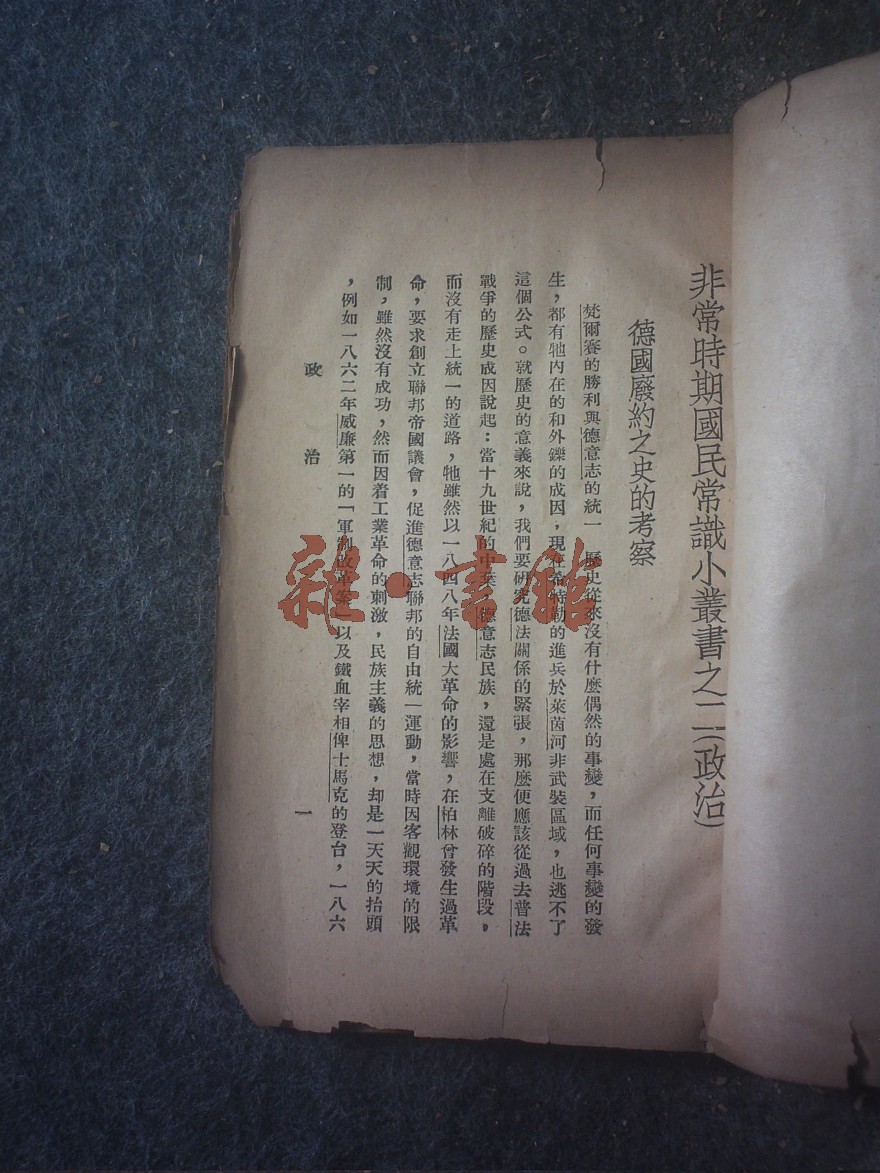 非常時期國民常識小叢書之二(政治)
德國廢約之史的考察
梵爾賽的勝利與德意志的統一 歷史從來沒有什麼偶然的事變，而任何事變的發
生，都有牠內在的和外鑠的成因，現在希特勒的進兵於萊茵河非武裝區域，也逃不了
這個公式。就歷史的意義來說，我們要研究德法關係的緊張，那麼便應該從過去普法
戰爭的歷史成因說起：當十九世紀的中葉，德意志民族，還是處在支離破碎的階段，
而沒有走上統一的道路，牠雖然以一八四八年法國大革命的影響，在柏林曾發生過革
命，要求創立聯邦帝國議會，促進德意志聯邦的自由統一運動，當時因客觀環境的限
制，雖然沒有成功，然而因着工業革命的刺激，民族主義的思想，却是一天天的抬頭
，例如一八六二年威廉第一的「軍制改革案」以及鐵血宰相俾士馬克的登台，一八六
政治
一
雜·書館